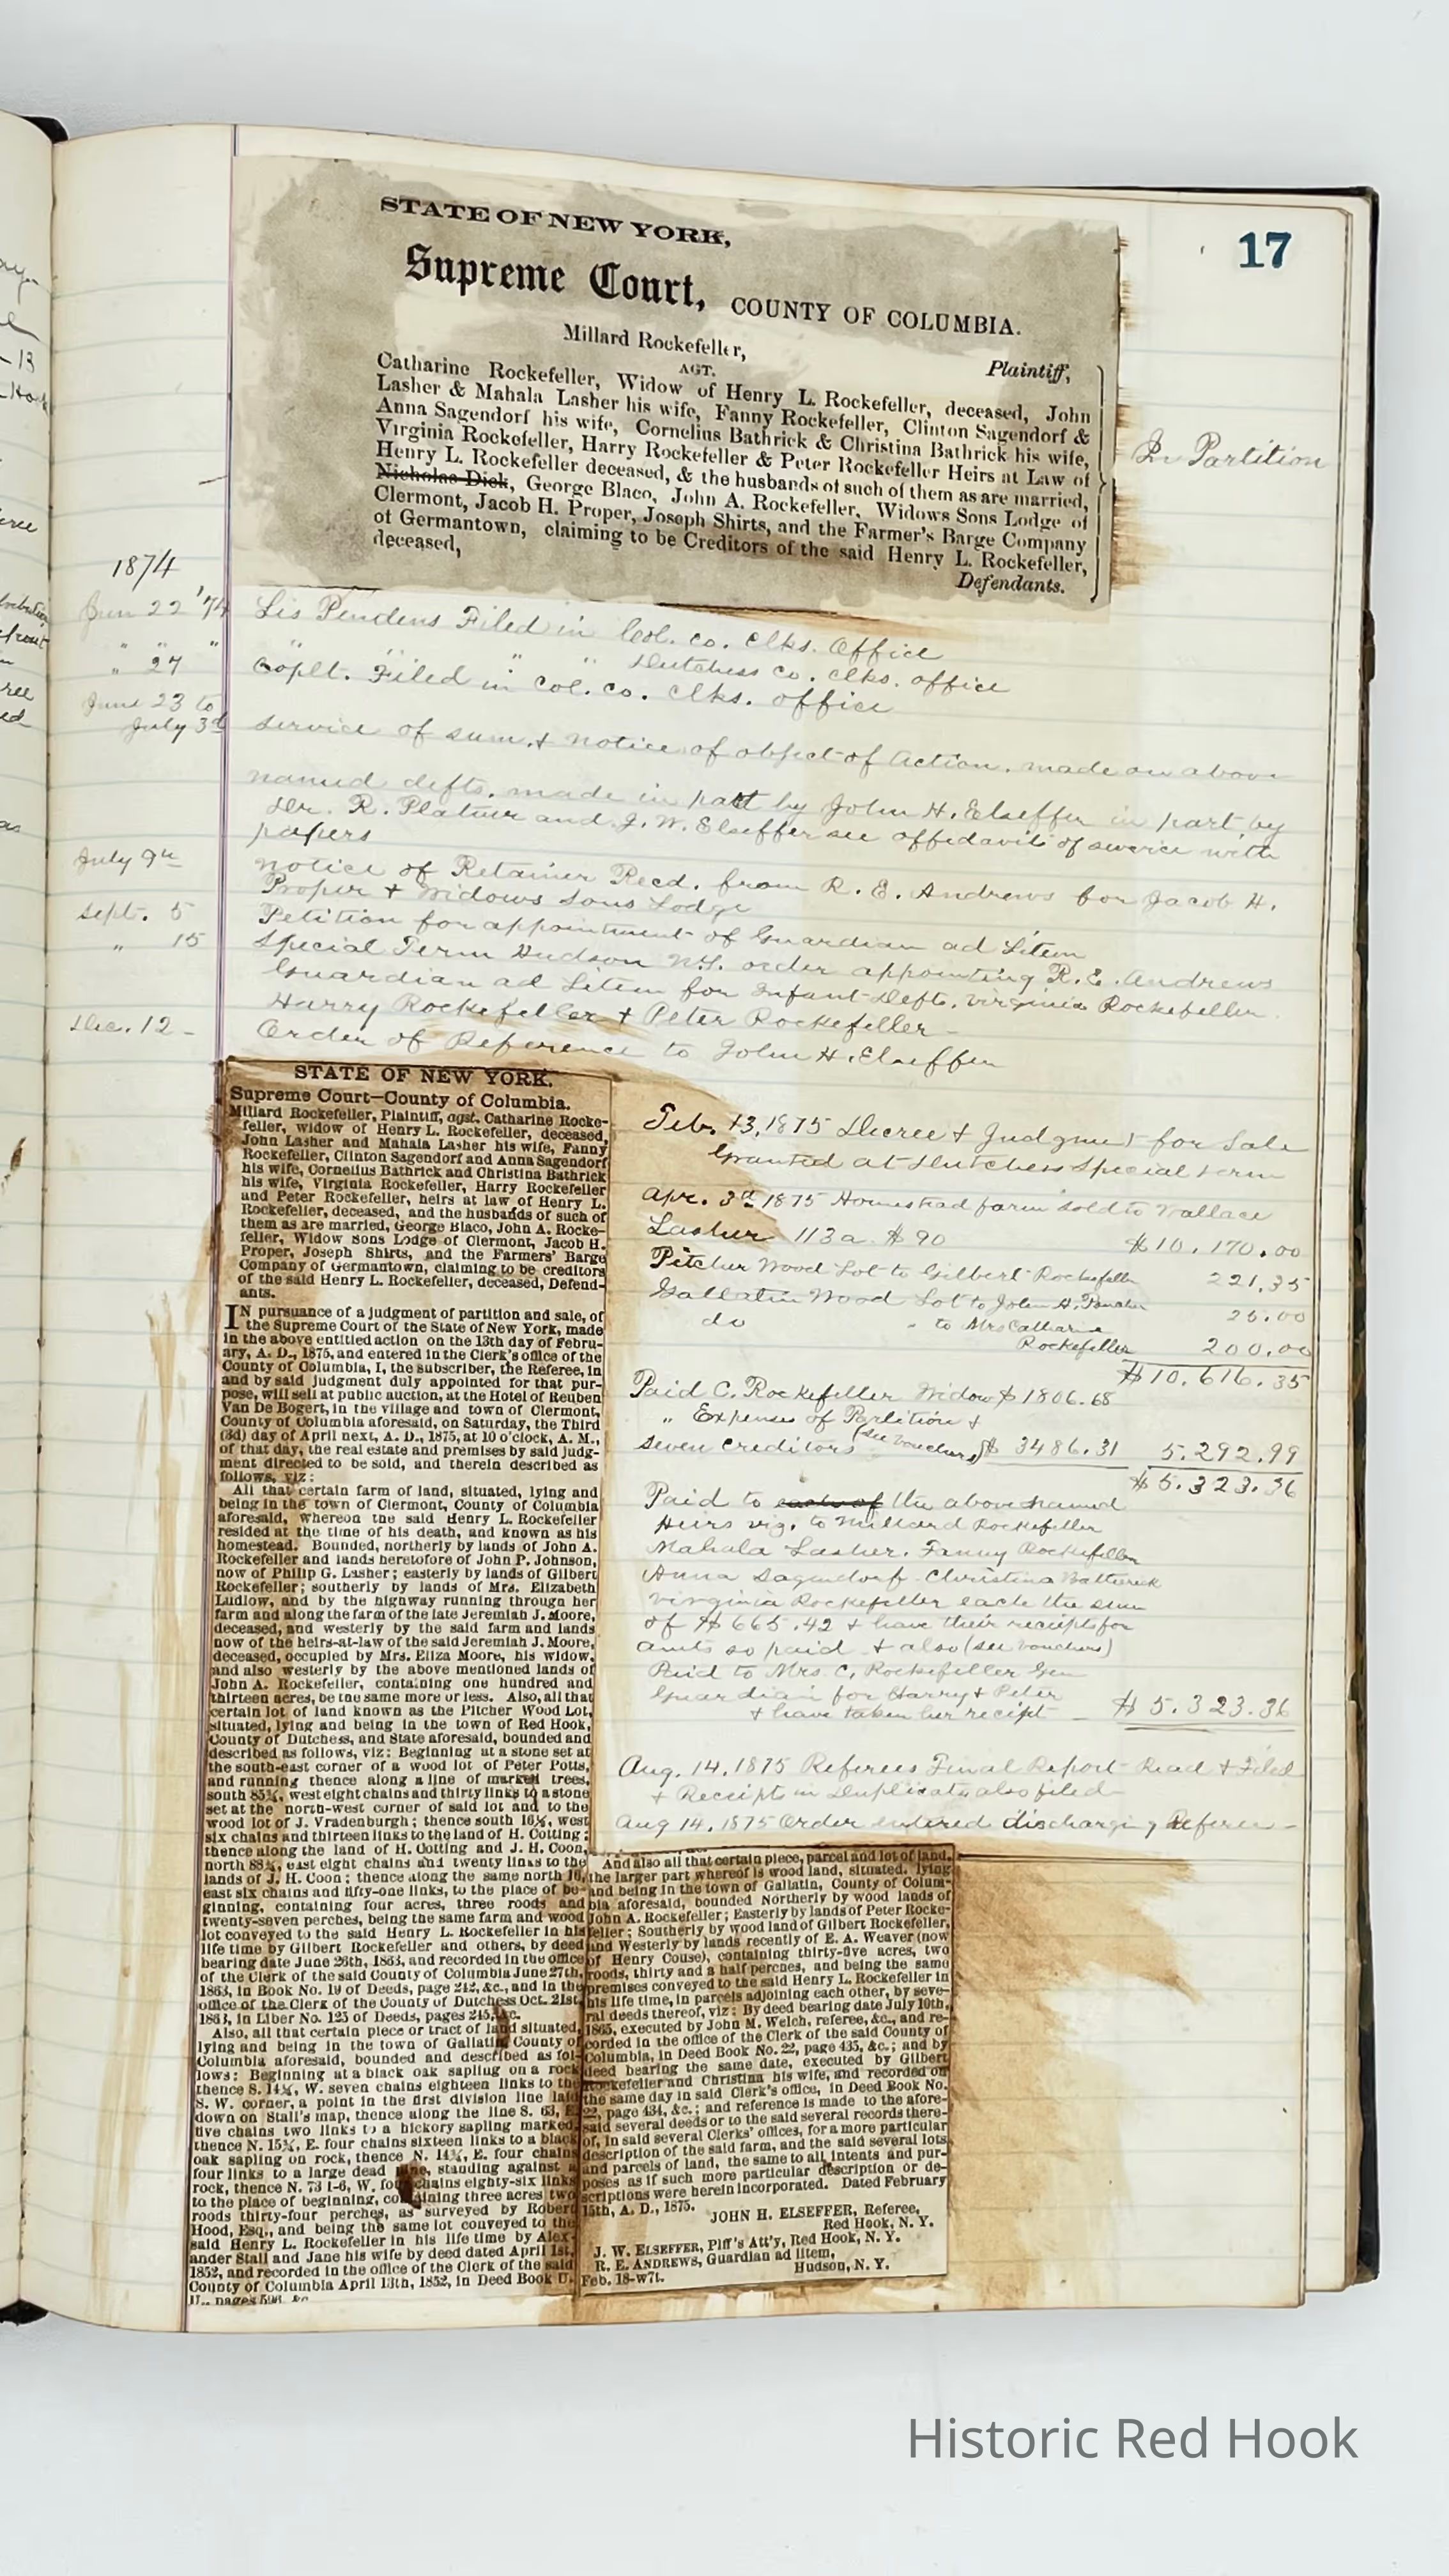 17
STATE OF NEW YORK,
Supreme Court, COUNTY OF COLUMBIA.
Millard Rockefeller,
Plaintiff,
AGT.
Catharine Rockefeller, Widow of Henry L. Rockefeller, deceased, John
Lasher & Mahala Lasher his wife, Fanny Rockefeller, Clinton Sagendorf &
Anna Sagendorf his wife, Cornelius Bathrick & Christina Bathrick his wife,
Virginia Rockefeller, Harry Rockefeller & Peter Rockefeller Heirs at Law of
Henry L. Rockefeller deceased, & the husbands of such of them as are married,
Nicholas Dick, George Blaco, John A. Rockefeller, Widows Sons Lodge of
Clermont, Jacob H. Proper, Joseph Shirts, and the Farmer's Barge Company
of Germantown, claiming to be Creditors of the said Henry L. Rockefeller,
deceased,
Defendants.
In Partition
1874
Jun 22 '74 Lis Pendens Filed in Col. co. Clks. Office
" " " " " " " Dutchess co. clks. office
" 24 Coplt. Filed in Col. co. Clks. office
June 23 to
July 3d service of sum. & notice of object of Action. made on above
named defts. made in part by John H. Elseffer in part by
Dr. R. Platner and J. W. Elseffer see affidavits of service with
papers
July 9th notice of Retainer Recd. from R. E. Andrews for Jacob H.
Proper & Widows Sons Lodge
Sept. 5 Petition for appointment of Guardian ad Litem
" 15 Special Term Hudson N.Y. order appointing R. E. Andrews
Guardian ad Litem for Infant Defts. Virginia Rockefeller
Harry Rockefeller & Peter Rockefeller -
Dec. 12 - Order of Reference to John H. Elseffer
STATE OF NEW YORK.
Supreme Court—County of Columbia.
Millard Rockefeller, Plaintiff, agst. Catharine Rocke-
feller, widow of Henry L. Rockefeller, deceased,
John Lasher and Mahala Lasher his wife, Fanny
Rockefeller, Clinton Sagendorf and Anna Sagendorf
his wife, Cornelius Bathrick and Christina Bathrick
his wife, Virginia Rockefeller, Harry Rockefeller
and Peter Rockefeller, heirs at law of Henry L.
Rockefeller, deceased, and the husbands of such of
them as are married, George Blaco, John A. Rocke-
feller, Widow sons Lodge of Clermont, Jacob H.
Proper, Joseph Shirts, and the Farmers' Barge
Company of Germantown, claiming to be creditors
of the said Henry L. Rockefeller, deceased, Defend-
ants.
IN pursuance of a judgment of partition and sale, of
the Supreme Court of the State of New York, made
in the above entitled action on the 13th day of Febru-
ary, A. D., 1875, and entered in the Clerk's office of the
County of Columbia, I, the subscriber, the Referee, in
and by said judgment duly appointed for that pur-
pose, will sell at public auction, at the Hotel of Reuben
Van De Bogert, in the village and town of Clermont,
County of Columbia aforesaid, on Saturday, the Third
(3d) day of April next, A. D., 1875, at 10 o'clock, A. M.,
of that day, the real estate and premises by said judg-
ment directed to be sold, and therein described as
follows, viz:
All that certain farm of land, situated, lying and
being in the town of Clermont, County of Columbia
aforesaid, whereon the said Henry L. Rockefeller
resided at the time of his death, and known as his
homestead. Bounded, northerly by lands of John A.
Rockefeller and lands heretofore of John P. Johnson,
now of Philip G. Lasher; easterly by lands of Gilbert
Rockefeller; southerly by lands of Mrs. Elizabeth
Ludlow, and by the highway running through her
farm and along the farm of the late Jeremiah J. Moore,
deceased, and westerly by the said farm and lands
now of the heirs-at-law of the said Jeremiah J. Moore,
deceased, occupied by Mrs. Eliza Moore, his widow,
and also westerly by the above mentioned lands of
John A. Rockefeller, containing one hundred and
thirteen acres, be the same more or less. Also, all that
certain lot of land known as the Pitcher Wood Lot,
situated, lying and being in the town of Red Hook,
County of Dutchess, and State aforesaid, bounded and
described as follows, viz: Beginning at a stone set at
the south-east corner of a wood lot of Peter Potts,
and running thence along a line of marked trees,
south 85¼, west eight chains and thirty links to a stone
set at the north-west corner of said lot and to the
wood lot of J. Vradenburgh; thence south 16½, west
six chains and thirteen links to the land of H. Cotting;
thence along the land of H. Cotting and J. H. Coon,
north 88¼, east eight chains and twenty links to the
lands of J. H. Coon; thence along the same north 16,
east six chains and fifty-one links, to the place of be-
ginning, containing four acres, three roods and
twenty-seven perches, being the same farm and wood
lot conveyed to the said Henry L. Rockefeller in his
life time by Gilbert Rockefeller and others, by deed
bearing date June 26th, 1863, and recorded in the office
of the Clerk of the said County of Columbia June 27th,
1863, in Book No. 19 of Deeds, page 212, &c., and in the
office of the Clerk of the County of Dutchess Oct. 21st,
1863, in Liber No. 125 of Deeds, pages 245, &c.
Also, all that certain piece or tract of land situated,
lying and being in the town of Gallatin, County of
Columbia aforesaid, bounded and described as fol-
lows: Beginning at a black oak sapling on a rock
thence S. 14¼, W. seven chains eighteen links to the
S. W. corner, a point in the first division line laid
down on Stall's map, thence along the line S. 63, E.
five chains two links to a hickory sapling marked,
thence N. 15¼, E. four chains sixteen links to a black
oak sapling on rock, thence N. 14¼, E. four chains
four links to a large dead pine, standing against a
rock, thence N. 73 1-6, W. four chains eighty-six links
to the place of beginning, containing three acres two
roods thirty-four perches, as surveyed by Robert
Hood, Esq., and being the same lot conveyed to the
said Henry L. Rockefeller in his life time by Alex-
ander Stall and Jane his wife by deed dated April 1st,
1852, and recorded in the office of the Clerk of the said
County of Columbia April 13th, 1852, in Deed Book U.
U., pages 598, &c
Feb. 13, 1875 Decree & Judgment for Sale
Granted at Dutchess Special term
Apr. 3d 1875 Homestead farm sold to Wallace
Lasher 113 a $90 $10,170.00
Pitcher Wood Lot to Gilbert Rockefeller 221.35
Gallatin Wood Lot to John H. 25.00
do " to Mrs Catharine
Rockefeller 200.00
$10,616.35
Paid C. Rockefeller Widow $1806.68
" Expenses of Partition &
seven creditors (see vouchers) $3486.31 5,292.99
$5,323.36
Paid to each of the above named
Heirs viz. to Millard Rockefeller
Mahala Lasher. Fanny Rockefeller
Anna Sagendorf Christina Bathrick
Virginia Rockefeller each the sum
of $665.42 & have their receipts for
amts so paid & also (see vouchers)
Paid to Mrs. C. Rockefeller Gen
Guardian for Harry & Peter
& have taken her receipt $5,323.36
Aug. 14, 1875 Referees Final Report Read & Filed
& Receipts in Duplicate also filed
Aug 14, 1875 Order entered discharging Referee -
And also all that certain piece, parcel and lot of land,
the larger part whereof is wood land, situated, lying
and being in the town of Gallatin, County of Colum-
bia aforesaid, bounded Northerly by wood lands of
John A. Rockefeller; Easterly by lands of Peter Rocke-
feller; Southerly by wood land of Gilbert Rockefeller,
and Westerly by lands recently of E. A. Weaver (now
of Henry Couse), containing thirty-five acres, two
roods, thirty and a half perches, and being the same
premises conveyed to the said Henry L. Rockefeller in
his life time, in parcels adjoining each other, by seve-
ral deeds thereof, viz: By deed bearing date July 10th,
1865, executed by John M. Welch, referee, &c., and re-
corded in the office of the Clerk of the said County of
Columbia, in Deed Book No. 22, page 435, &c.; and by
deed bearing the same date, executed by Gilbert
Rockefeller and Christina his wife, and recorded on
the same day in said Clerk's office, in Deed Book No.
22, page 434, &c.; and reference is made to the afore-
said several deeds or to the said several records there-
of, in said several Clerks' offices, for a more particular
description of the said farm, and the said several lots
and parcels of land, the same to all intents and pur-
poses as if such more particular description or de-
scriptions were herein incorporated. Dated February
15th, A. D., 1875.
JOHN H. ELSEFFER, Referee,
Red Hook, N. Y.
J. W. ELSEFFER, Plff's Att'y, Red Hook, N. Y.
R. E. ANDREWS, Guardian ad litem,
Hudson, N. Y.
Feb. 18-w7t.
Historic Red Hook